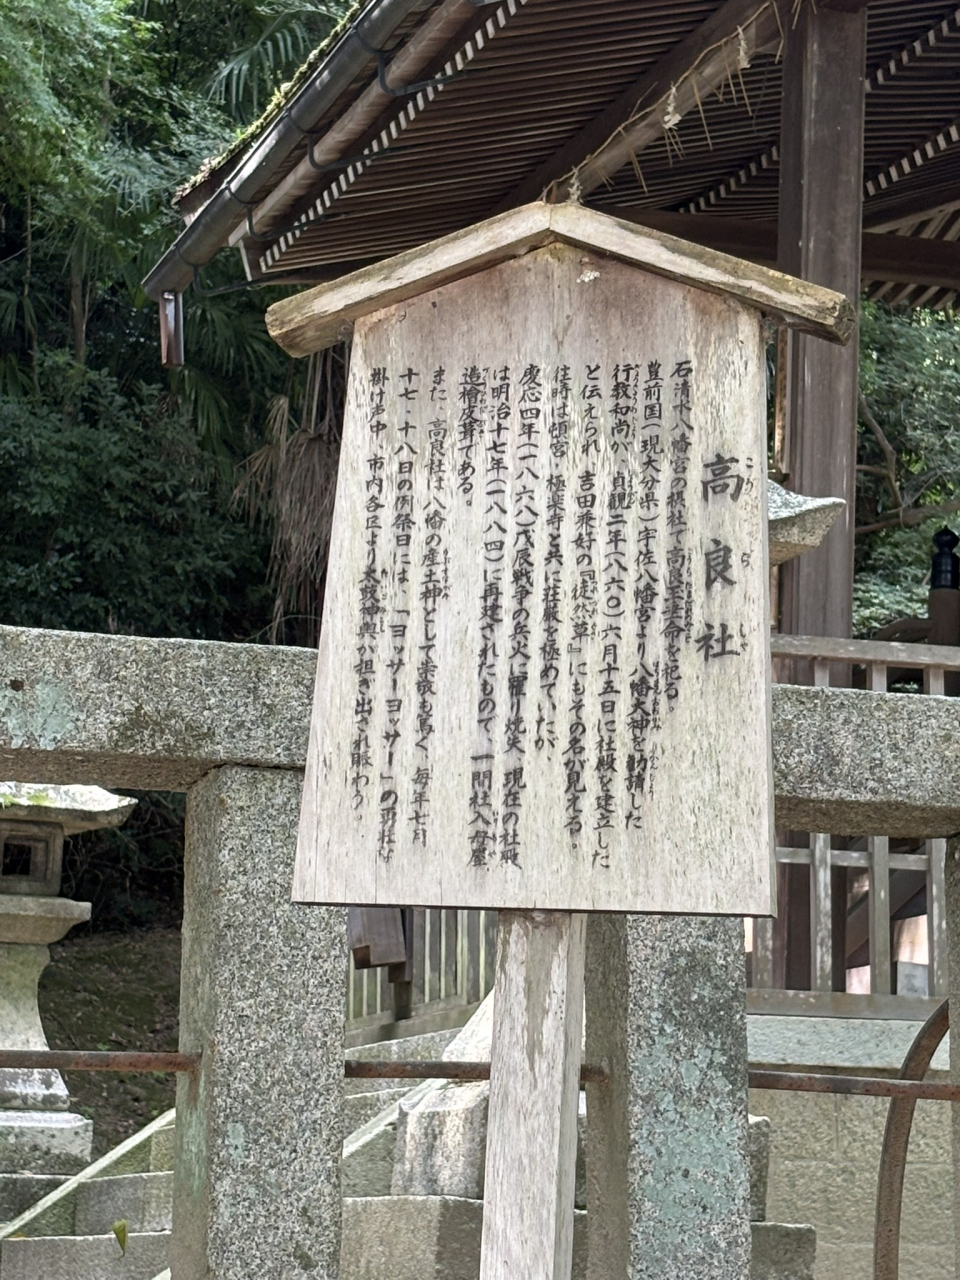 高良社
石清水八幡宮の摂社で高良玉垂命を祀る。
豊前国(現大分県)宇佐八幡宮より八幡大神を勧請した
行教和尚が、貞観二年(八六〇)六月十五日に社殿を建立した
と伝えられ 吉田兼好の『徒然草』にもその名が見える。
往時は頓宮・極楽寺と共に荘厳を極めていたが、
慶応四年(一八六八)戊辰戦争の兵火に罹り焼失、現在の社殿
は明治十七年(一八八四)に再建されたもので、一間社入母屋
造檜皮葺である。
また、高良社は八幡の産土神として崇敬も篤く、毎年七月
十七、十八日の例祭日には、「ヨッサーヨッサー」の勇壮な
掛け声中 市内各区より太鼓神輿が担ぎ出され賑わう。